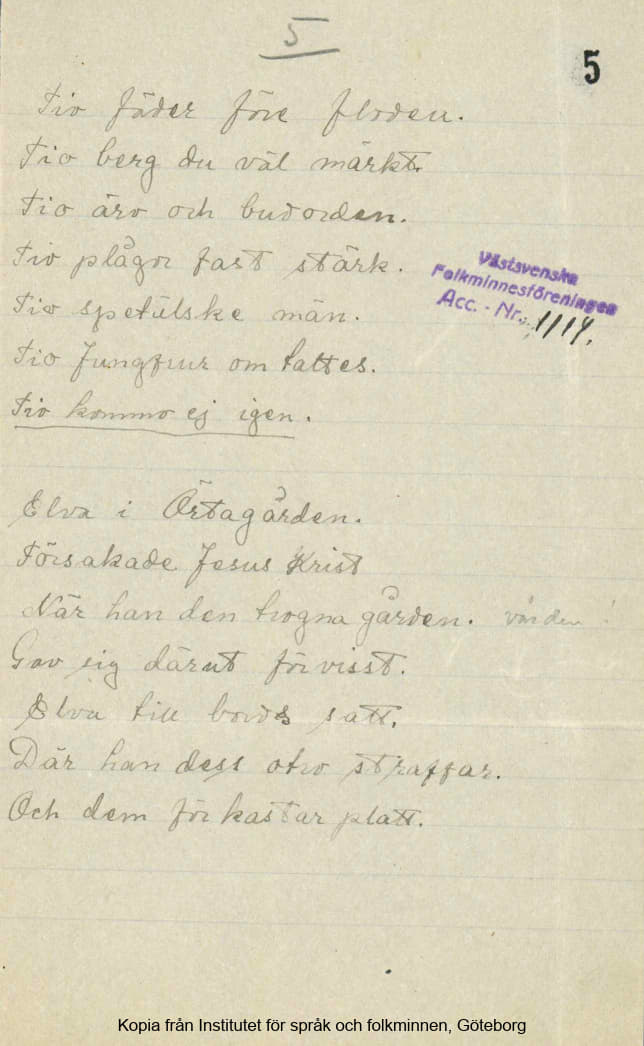 5
5
Tio fäder före floden.
Tio berg du väl märkt.
Tio äro och budorden.
Tio plågor fast stärk.
Västsvenska
Folkminnesföreningen
Acc. - Nr. 1114.
Tio spetälske män.
Tio Jungfrur om tattes.
Tio kommo ej igen.
Elva i Örtagården.
Försakade Jesus Krist
När han den trogna gården. vården!
Gav sig därut förvisst.
Elva till bords satt.
Där han dess otro straffar.
Och dem förkastar platt.
Kopia från Institutet för språk och folkminnen, Göteborg